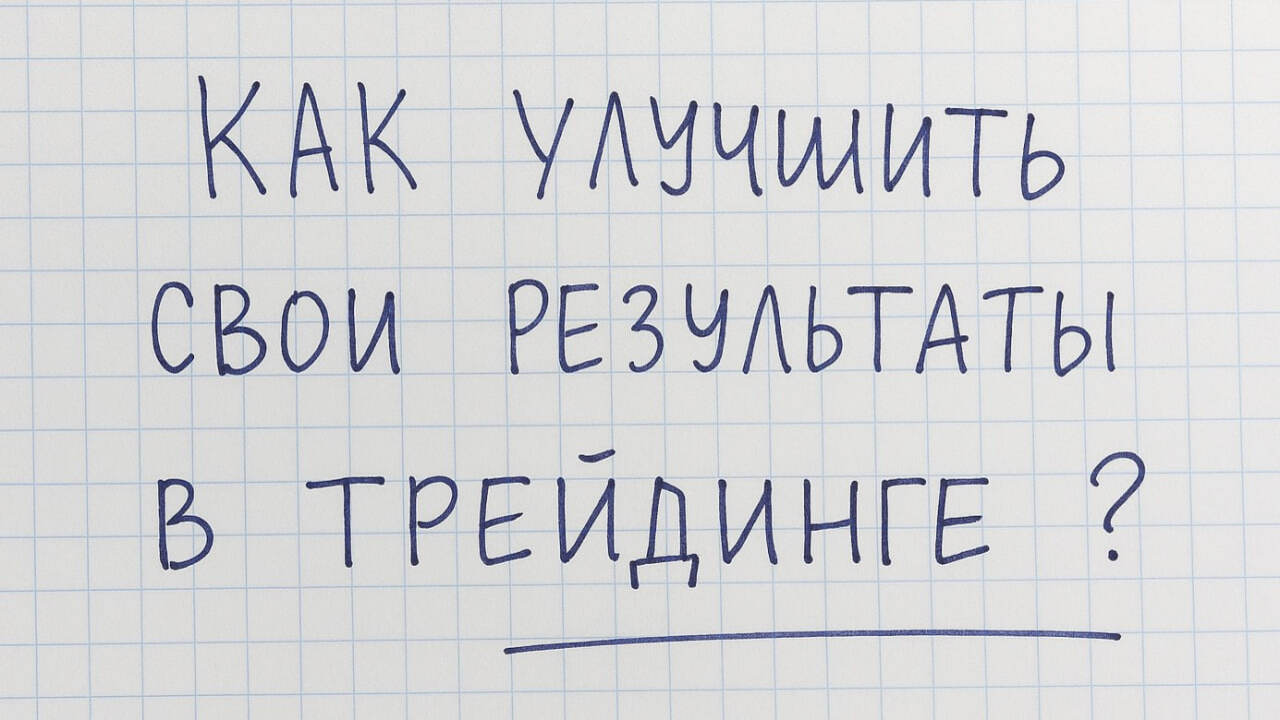 КАК УЛУЧШИТЬ
СВОИ РЕЗУЛЬТАТЫ
В ТРЕЙДИНГЕ ?